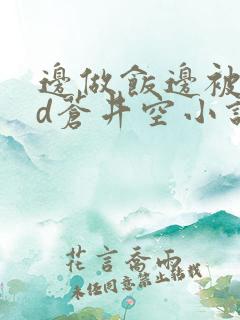 邊做飯邊被
d蒼井空小說
花言喬雨
未经同意禁止转载